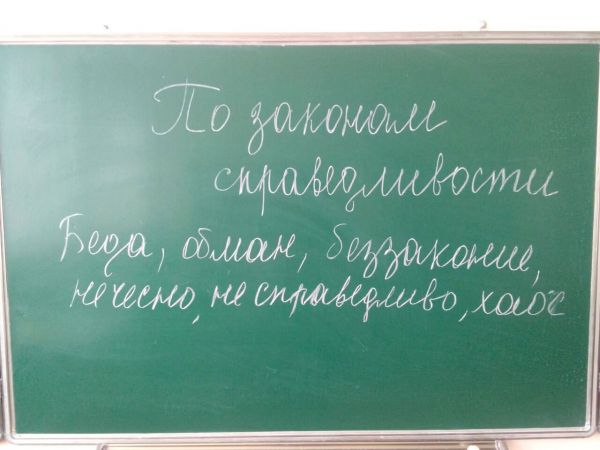 По законам
справедливости
Беда, обман, беззаконие,
не чесно, не справедливо, хаос